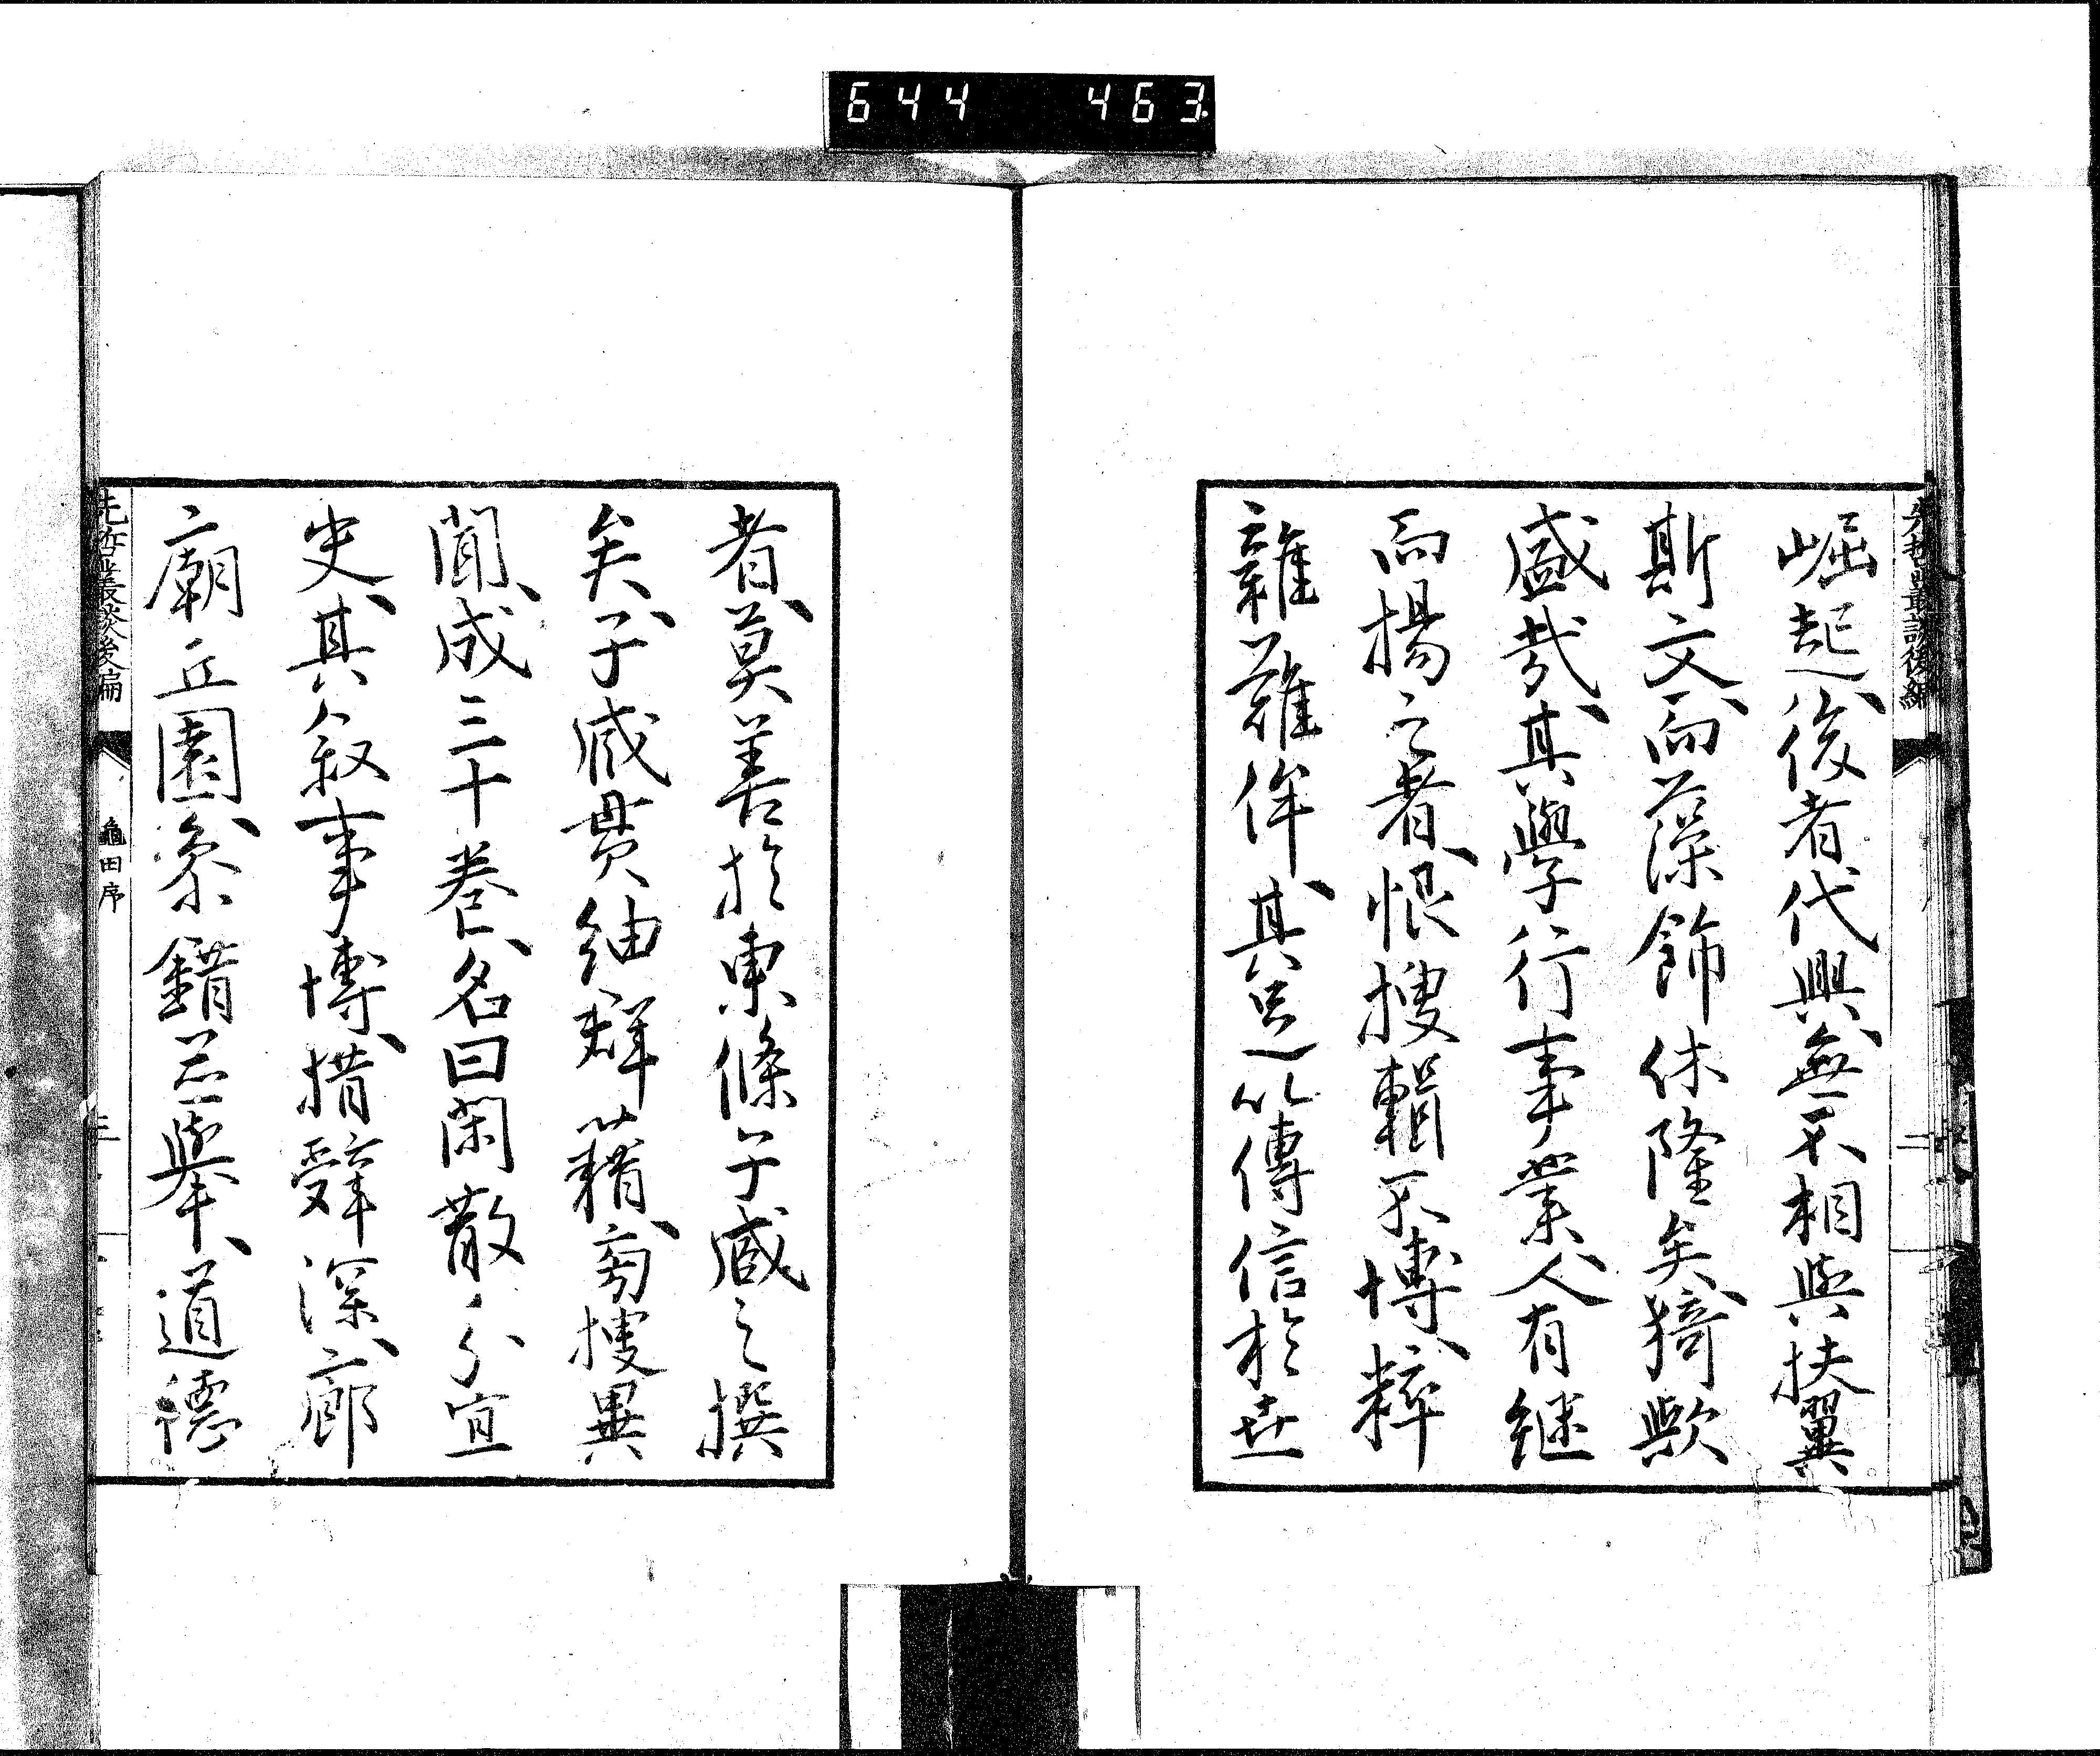 644 463
先哲叢談後編
二
崛起、後者代興、無不相與扶翼
斯文、而藻飾休隆矣、猗歟
盛哉、其學行事業、人有継
而揚之者、恨搜輯不博、粹
雜難侔、其足以傳信於世
者、莫善於東條子臧之撰
矣、子臧貫紬群籍、旁搜異
聞、成三十巻、名曰閑散余宜
史、其叙事博、措辭深、廊
廟丘園、參錯並舉、道德
先哲叢談後編
龜田序
三